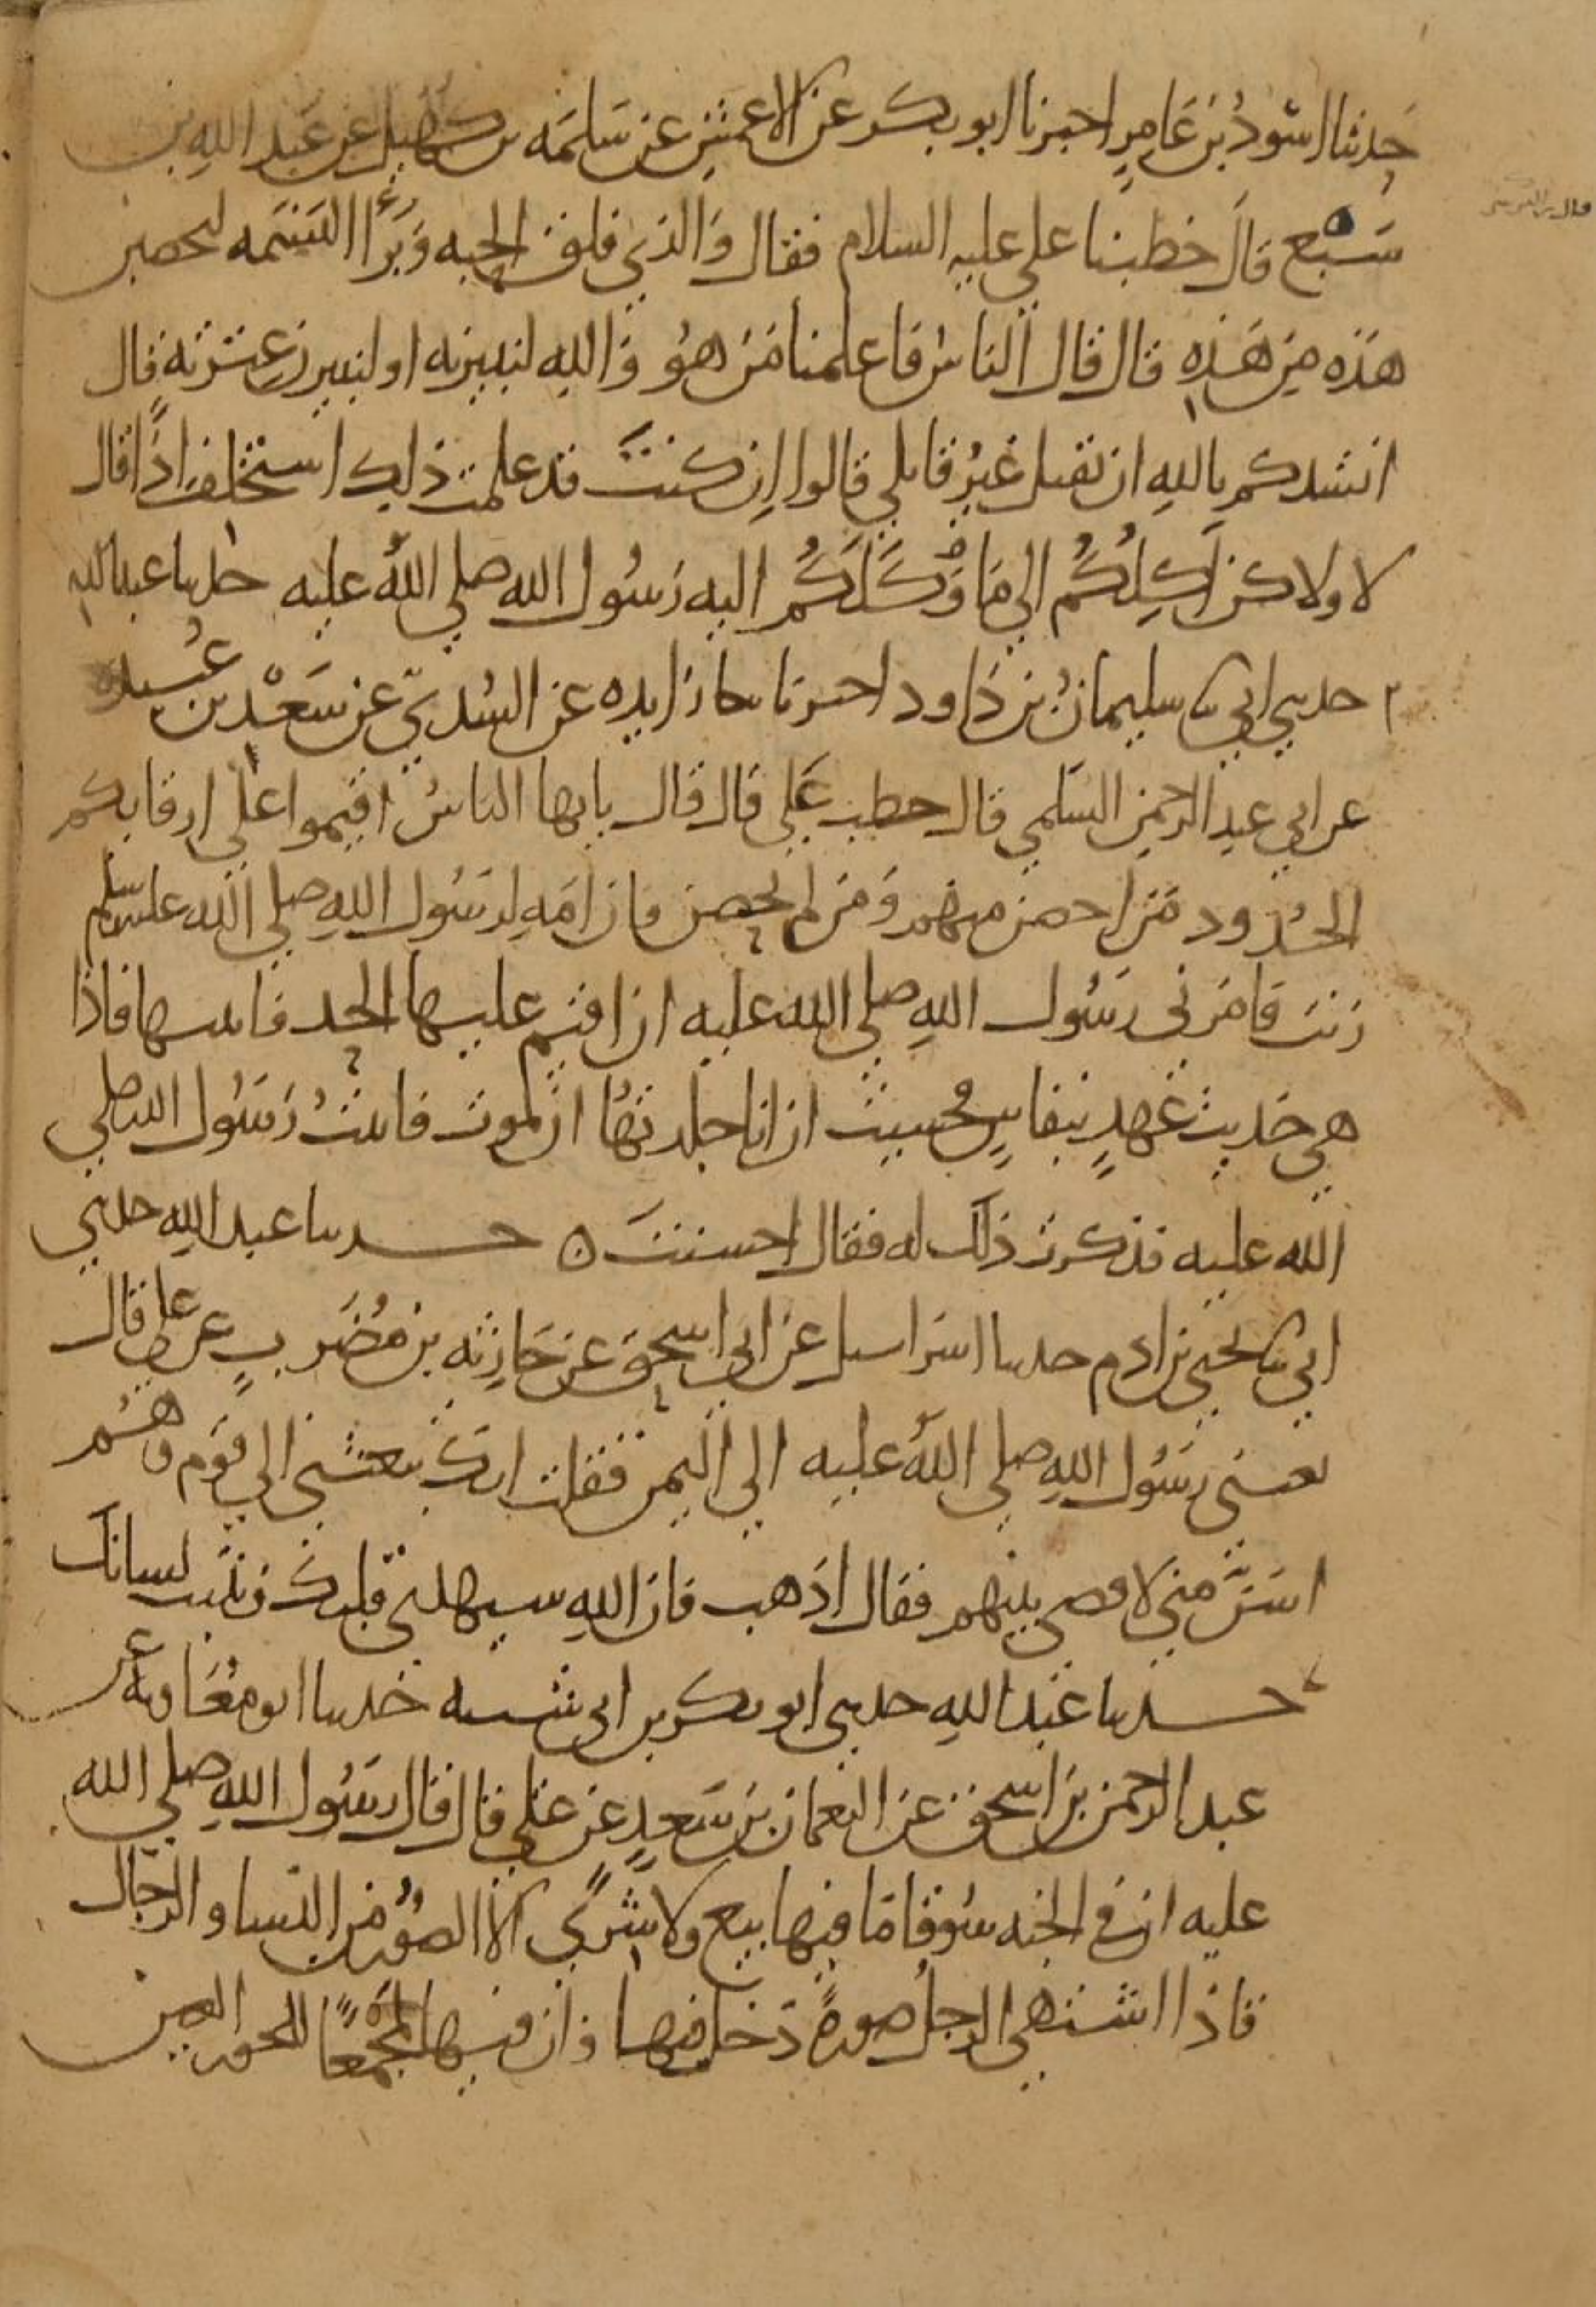 حدثنا اسود بن عامر اخبرنا ابو بكر عن الاعمش عن سلمه بن كهيل عن عبد الله بن
سبع قال خطبنا علي عليه السلام فقال والذي فلق الحبه وبرأ النسمه لتخضبن
هذه من هذه قال قال الناس فاعلمنا من هو والله لنبيرنه او لنبيرن عترته قال
انشدكم بالله ان تقبل غير قاتلي قالوا ان كنت قد علمت ذلك استخلف اذا قال
لا ولاكن اكلكم الي ما وكلكم اليه رسول الله صلي الله عليه حدثنا عبد الله
حدثني ابي ثنا سليمان بن داود اخبرنا زايده عن السدي عن سعد بن عبيده
عن ابي عبد الرحمن السلمي قال خطب علي قال قال يايها الناس اقيموا علي ارقايكم
الحدود من احصن منهم ومن لم يحصن فان امه لرسول الله صلي الله عليه وسلم
زنت فامرني رسول الله صلي الله عليه ان اقيم عليها الحد فاتيتها فاذا
هي حديث عهد بنفاس فخشيت ان انا جلدتها ان تموت فاتيت رسول الله صلي
الله عليه فذكرت ذلك له فقال احسنت ه حدثنا عبد الله حدثني
ابي ثنا يحيي بن ادم حدثنا اسراييل عن ابي اسحق عن حارثه بن مضرب عن علي قال
بعثني رسول الله صلي الله عليه الي اليمن فقلت انك تبعثني الي قوم وهم
اسن مني لاقضي بينهم فقال اذهب فان الله سيهدي قلبك ويثبت لسانك
حدثنا عبد الله حدثني ابو بكر بن ابي شيبه حدثنا ابو معاويه عن
عبد الرحمن بن اسحق عن النعمان بن سعد عن علي قال قال رسول الله صلي الله
عليه ان في الجنه سوقا ما فيها بيع ولا شري الا الصور من النسا والرجال
فاذا اشتهي الرجل صورة دخل فيها وان فيها لمجمعا للحور العين